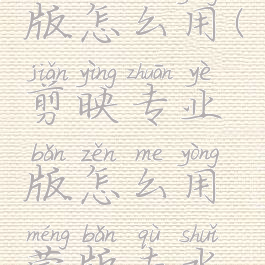 版怎么用(
jiǎn yìng zhuān yè
剪映专业
bǎn zěn me yòng
版怎么用
méng bǎn qù shuǐ
蒙版去水